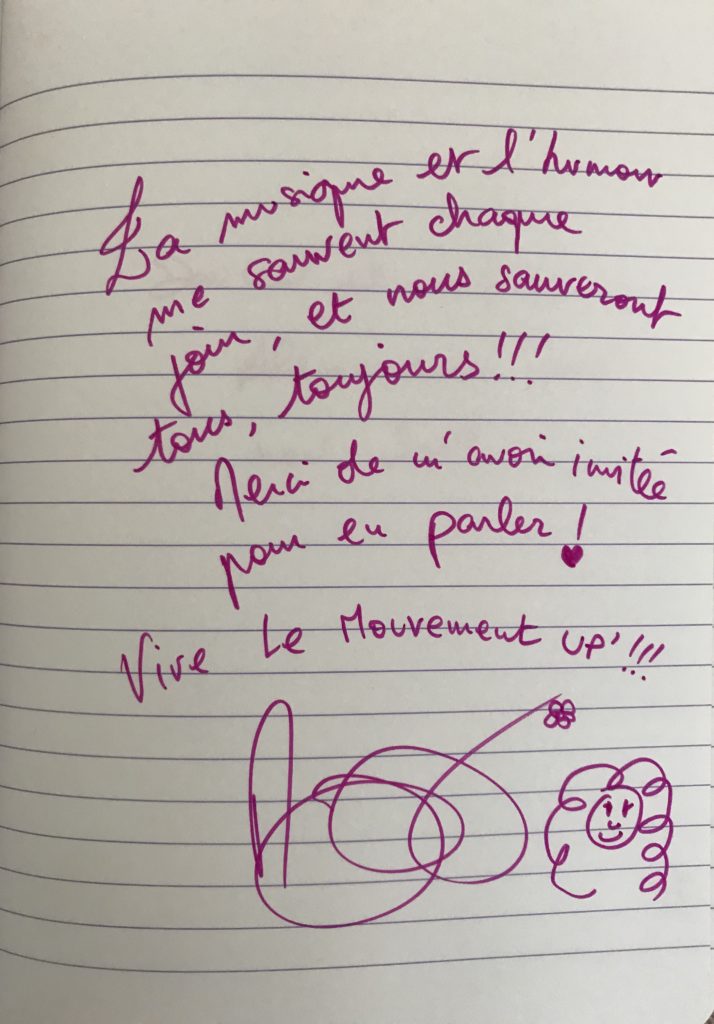 La musique et l'humour
me sauvent chaque
jour, et nous sauveront
tous, toujours!!!
Merci de m'avoir invitée
pour en parler!
Vive Le Mouvement UP'!!!